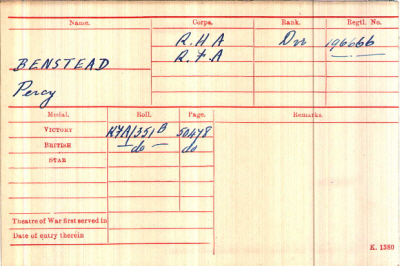 Name. Corps. Rank. Regtl. No.
R.H.A Dvr 196666
BENSTEAD R.F.A
Percy
Medal. Roll. Page. Remarks.
VICTORY RFA/351B 50478
BRITISH do do
STAR
Theatre of War first served in
Date of entry therein
K. 1380